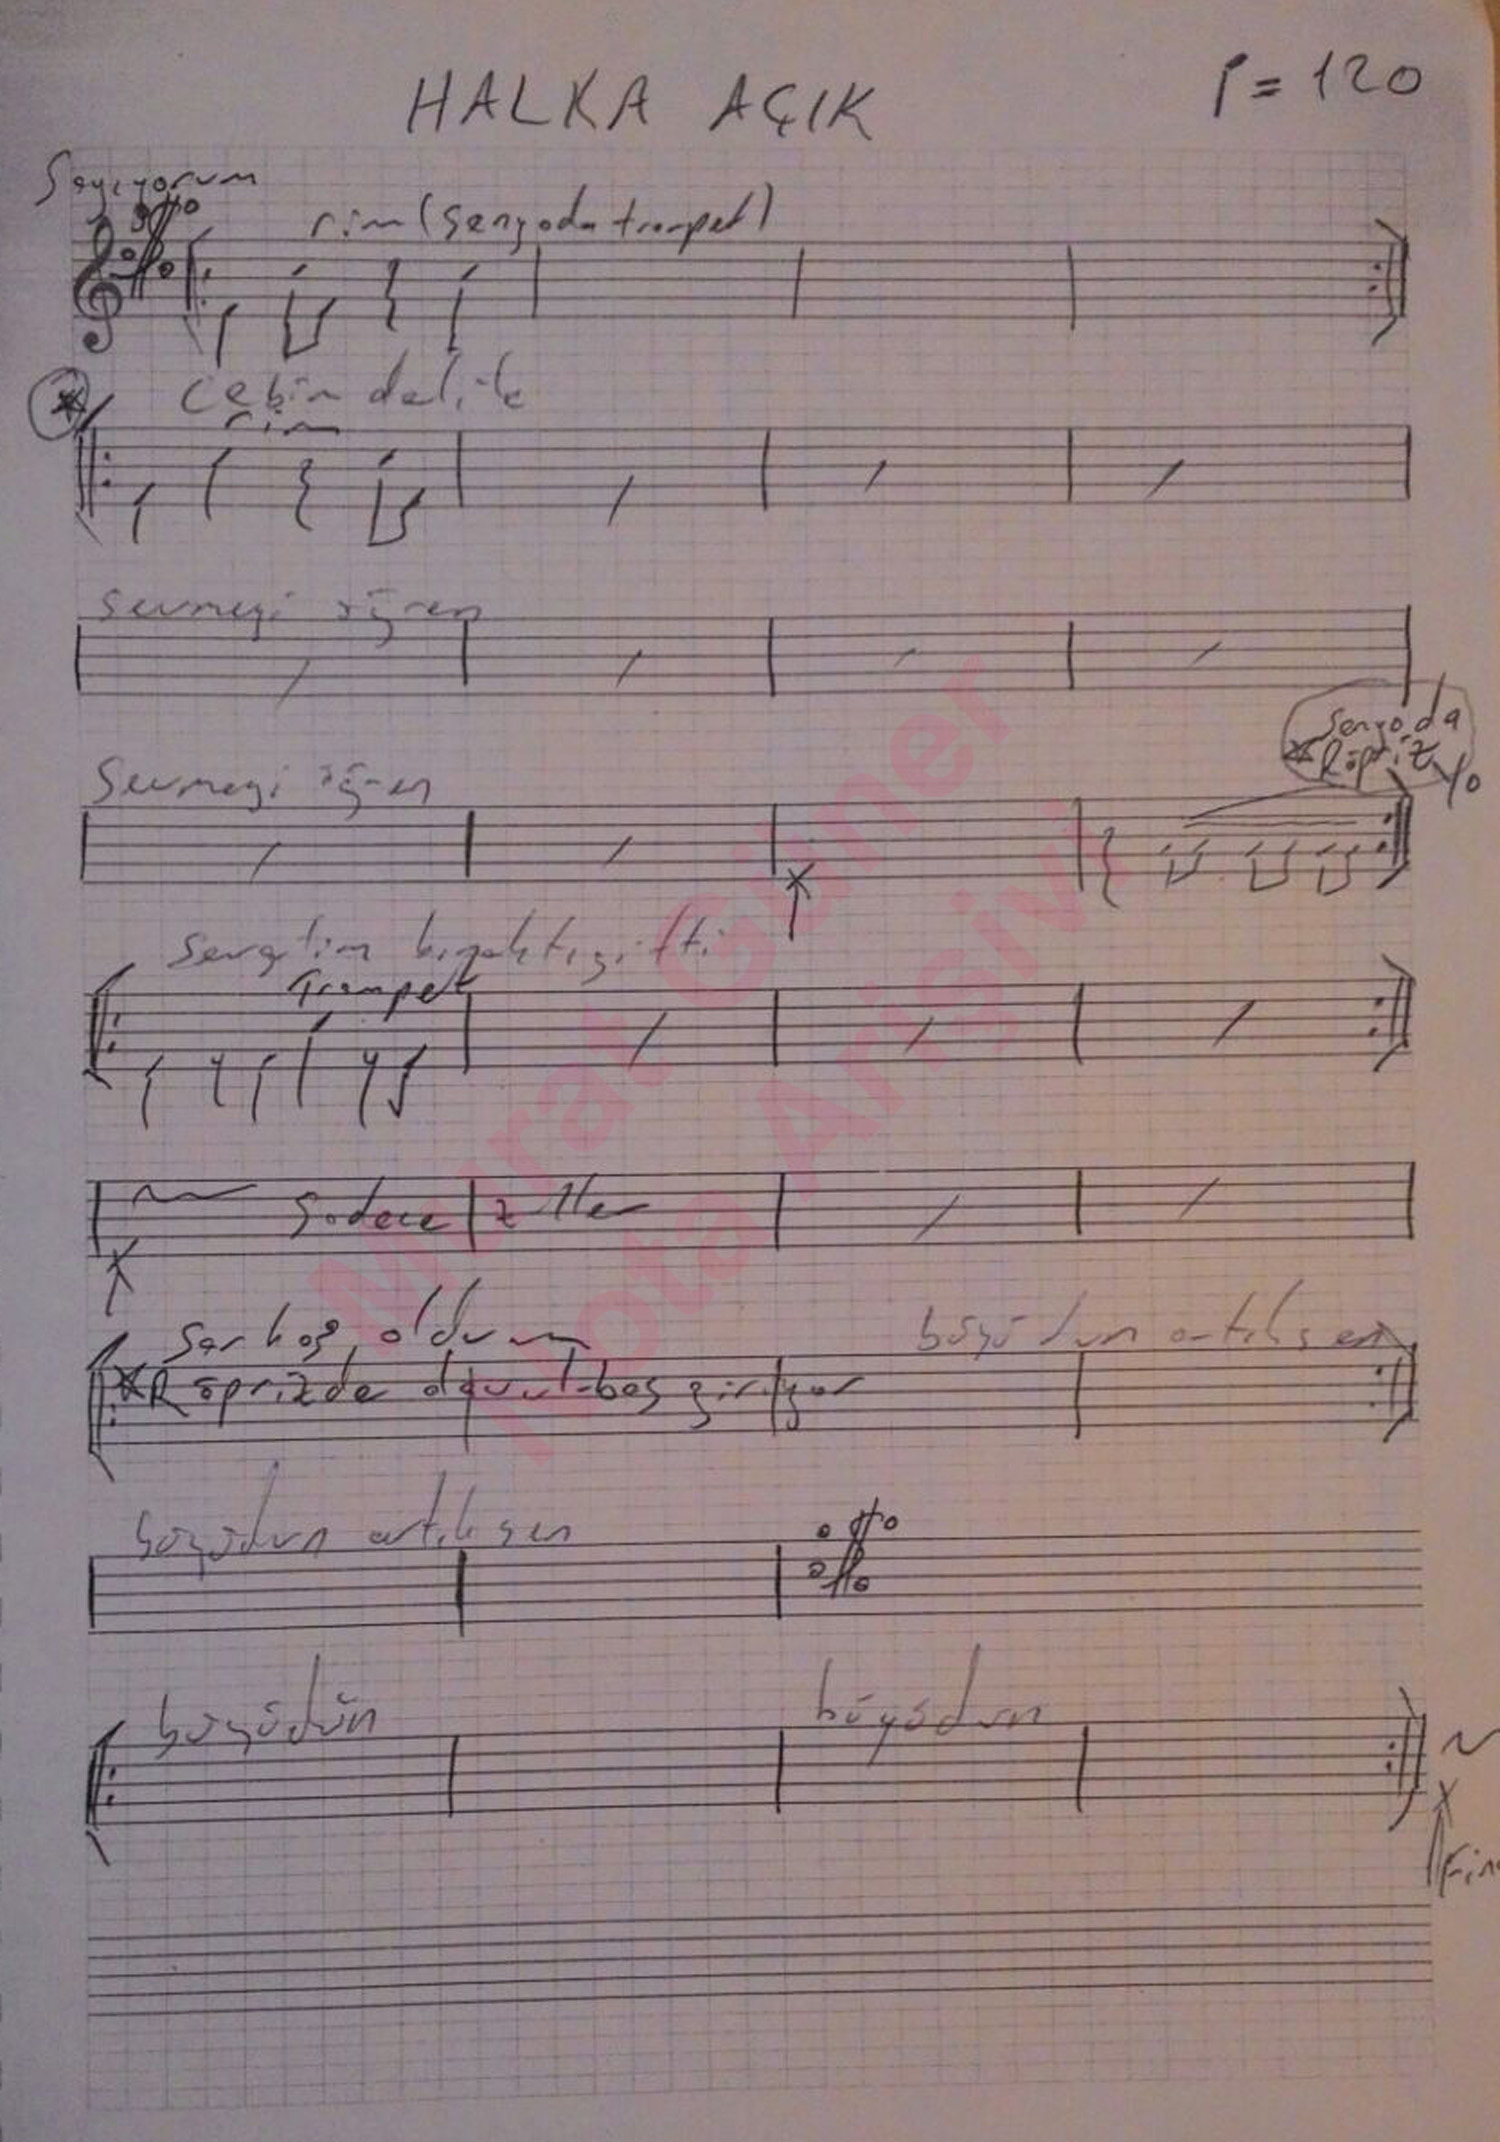 HALKA AÇIK
= 120
Sayıyorum
rim (senyoda trompet)
Cebin delik
rim
sevmeyi öğren
senyoda
Röpriz
Yo
Sevmeyi öğren
sevgilim bıraktı gitti
Trampet
Sadece ziller
Sarhoş oldum
büyüdün artık sen
Röprizde davul-bas giriyor
büyüdün artık sen
büyüdün
büyüdün
Murat Güner
Nota Arşivi